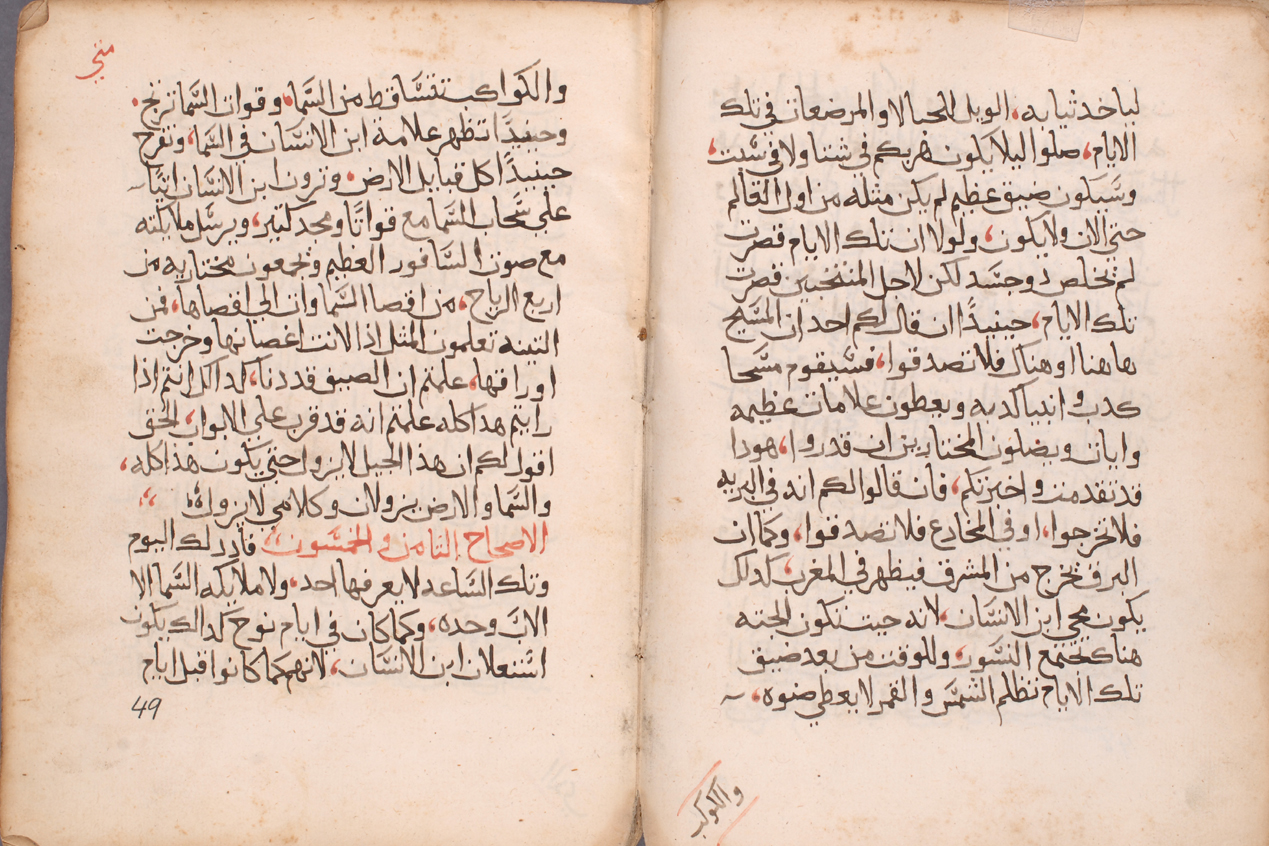 لياخد ثيابه، الويل للحبالا والمرضعات في تلك
الايام، صلوا ليلا يكون هربكم في شتا ولا في سبت،
وسيكون ضيق عظيم لم يكن مثله من اول العالم
حتي الان ولا يكون، ولولا ان تلك الايام قصرت
لم يخلص دو جسد لكن لاجل المنتخبين قصرت
تلك الايام، حينيدًا ان قال لكم احد ان المسيح
هاهنا او هناك فلا تصدقوا، فسيقوم مسحا
كدبه وانبيا كدبه ويعطون علامات عظيمه
وايات ويضلون المختارين ان قدروا، هودا
قد تقدمت واخبرتكم، فان قالوا لكم انه في البريه
فلا تخرجوا، او في المخادع فلا تصدقوا، وكما ان
البرق يخرج من المشرق فيظهر في المغرب، كدلك
يكون مجي ابن الانسان، لانه حيت تكون الجته
هناك تجتمع النسور، وللوقت من بعد ضيق
تلك الايام تظلم الشمس والقمر لا يعطي ضوه،
والكواكب
متي
والكواكب تتساقط من السما، وقوات السما ترتج.
وحينيدًا تظهر علامة ابن الانسان في السما، وتفرح
حينيدًا كل قبايل الارض. وترون ابن الانسان اتيًا
علي سحاب السما مع قواتًا ومجد كتير، ويرسل ملايكته
مع صوت السافور العظيم ويجمعون مختاريه من
اربع الرياح، من اقصا السماوات الي اقصاها، فمن
التينه تعلمون المثل اذا لانت اغصانها وخرجت
اوراقها، علمتم ان الصيف قد دنا، كداك انتم اذا
رايتم هدا كله علمتم انه قد قرب علي الابواب، الحق
اقول لكم ان هذا الجيل لا يزول حتي يكون هذا كله،
والسما والارض يزولان وكلامي لا يزول
الاصحاح التامن والخمسون فادلك اليوم
وتلك الساعه لا يعرفها احد، ولا ملايكه السما الا
الاب وحده، وكما كان في ايام نوح كدالك يكون
اشتعلان ابن الانسان، لانهم كما كانوا قبل ايام
49